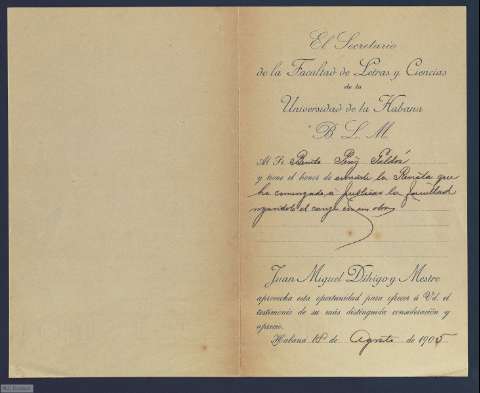 El Secretario
de la Facultad de Letras y Ciencias
de la
Universidad de la Habana
B. L. M.
Al Sr. Benito Pérez Galdós
y tiene el honor de enviarle la Revista que
ha comenzado á publicar la facultad
rogándole el canje con sus obras.
Juan Miguel Dihigo y Mestre
aprovecha esta oportunidad para ofrecer á Vd. el
testimonio de su más distinguida consideración y
aprecio.
Habana 18 de Agosto de 1905